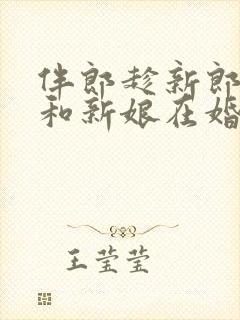 伴郎趁新郎
和新娘在婚
王莹莹